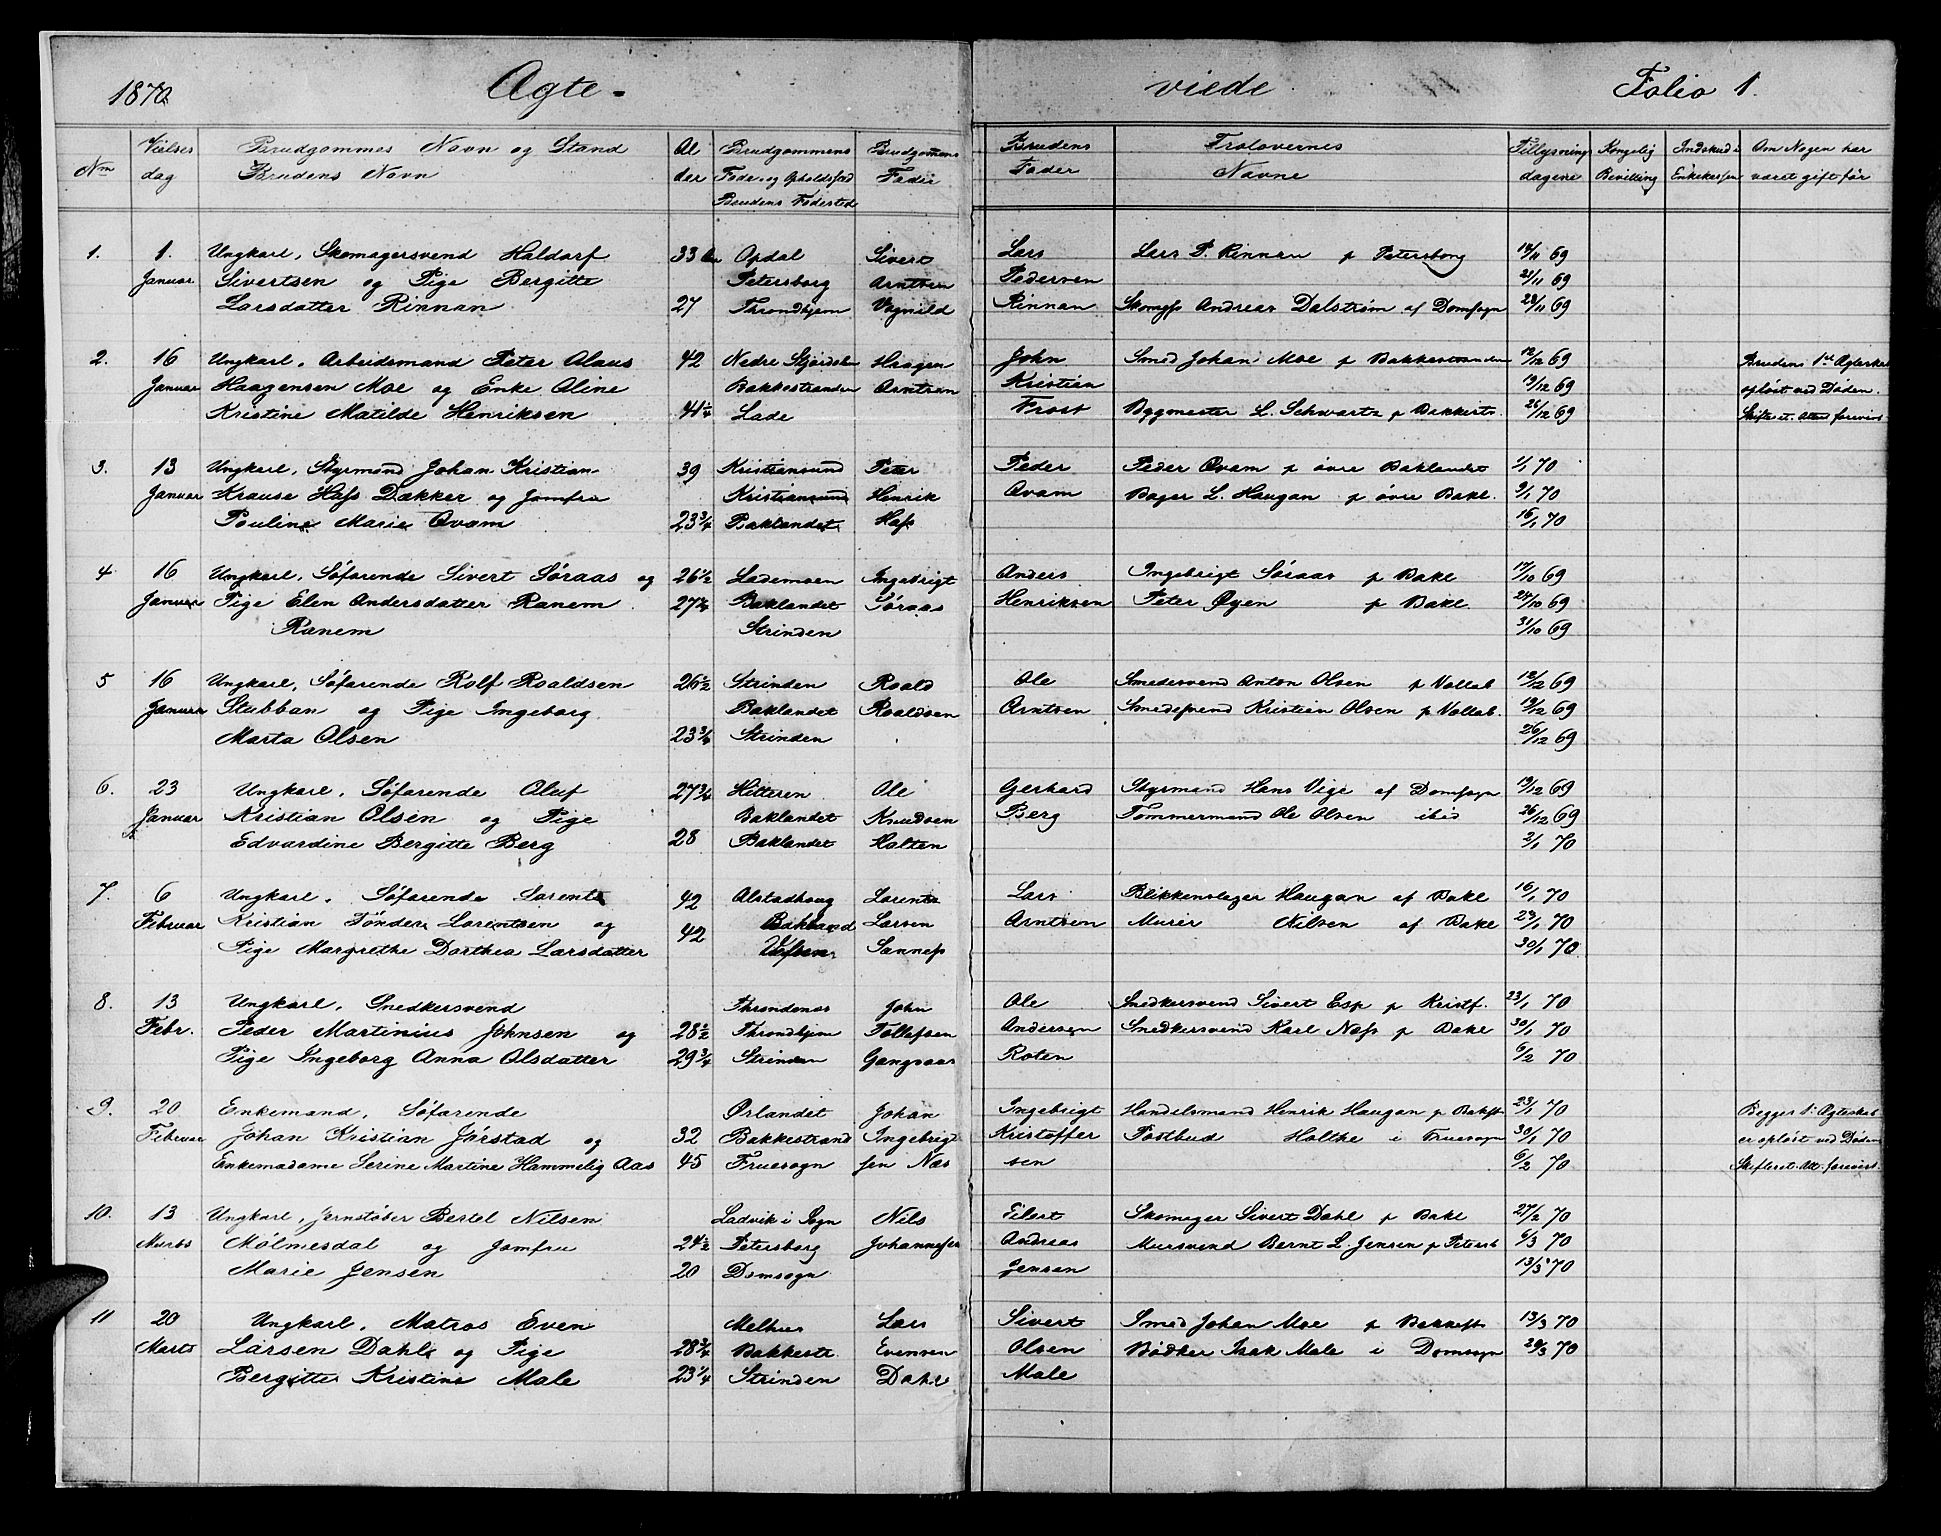 1870. Ægte- viede Folio 1.
Nm Vielses dag Brudgommes Navn og Stand Brudens Navn Alder Brudgommens Føde- og Opholdssted Brudens Fødested Brudgomens Fader Brudens Fader Trolovernes Navne Tillysnings dagene Kongelig Bevilling Indskud i Enkekassen Om Nogen har været gift før
1. 1. Ungkarl, Skomagersvend Haldorf 33 Opdal Sivert Lars Lars P. Rinnan p Petersborg 14/11 69
Januar Sivertsen og Pige Bergitte Petersborg Arntsen Pedersen 21/11 69
Larsdatter Rinnan 27 Throndhjem Vognild Rinnan Skomgs Andreas Dalstrøm af Domsogn 28/11 69
2. 16 Ungkarl, Arbeidsmand Peter Olaus 42 Nedre Stjørdalen Haagen John Smed Johan Moe p Bakkestranden 12/12 69 Brudens 1ste Ægteskab
Januar Haagensen Moe og Enke Oline Bakkestranden Arntsen Kristian 19/12 69 opløst ved Døden.
Kristine Matilde Henriksen 41 1/4 Lade Frost Bygmester L. Schwartz p Bakkestr. 26/12 69 Skifteret. Attest forevist
3. 13 Ungkarl, Styrmand Johan Kristian 39 Kristiansund Peter Peder Peder Qvam p øvre Baklandet 1/1 70
Januar Krause Hass Dækker og Jomfru Kristiansund Henrik Qvam Bager L. Haugan p øvre Bakl. 9/1 70
Pauline Marie Qvam 23 3/4 Baklandet Hass 16/1 70
4 16 Ungkarl, Søfarende Sivert Søraas og 26 1/2 Lademoen Ingebrigt Anders Ingebrigt Søraas p Bakl 17/10 69
Januar Pige Elen Andersdatter Ranem 27 Baklandet Søraas Henriksen Peter Øyen p Bakl. 24/10 69
Ranem Strinden 31/10 69
5 16 Ungkarl, Søfarende Rolf Roaldsen 26 1/2 Strinden Roald Ole Smedesvend Anton Olsen p Vollab 12/12 69
Januar Stubban og Pige Ingeborg Baklandet Roaldsen Arntsen Smedesvend Kristian Olsen p Vollab. 19/12 69
Marta Olsen 23 3/4 Strinden 26/12 69
6. 23 Ungkarl, Søfarende Oluf 27 3/4 Hitteren Ole Gerhard Styrmand Hans Vige af Domsogn 19/12 69
Januar Kristian Olsen og Pige Baklandet Knudsen Berg Tømmermand Ole Olsen ibid 26/12 69
Edvardine Bergitte Berg 28 Baklandet Holten 2/1 70
7. 6 Ungkarl, Søfarende Lorents 42 Alstadhoug Lorents Lars Blikkenslager Haugan af Bakl 16/1 70
Februar Kristian Tønder Lorentsen og 42 Bakland Larsen Arntsen Murer Nilsen af Bakl 23/1 70
Pige Margrethe Dorthea Larsdatter Vefsen Sanness 30/1 70
8. 13 Ungkarl, Snedkersvend Throndenæs John Ole Snedkersvend Sivert Esp p Kristf. 23/1 70
Febr. Peder Martinius Johnsen og 28 1/2 Throndhjem Tollefsen Andersen Snedkersvend Karl Næss p Bakl 30/1 70
Pige Ingeborg Anna Olsdatter 29 3/4 Strinden Gangsaas Roten 6/2 70
9. 20 Enkemand, Søfarende Ørlandet Johan Ingebrigt Handelsmand Henrik Haugan p Bakst 23/1 70 Begges 1st Ægteskab
Februar Johan Kristian Jørstad og 32 Bakkestrand Ingebrigt Kristoffer Postbud Holthe i Fruesogn 30/1 70 er opløst ved Døden
Enkemadame Serine Martine Hammelig Aas 45 Fruesogn sen Næs sen 6/2 70 Skifteret. Att. forevist.
10. 13 Ungkarl, Jernstøber Bertel Nilsen Ladvik i Sogn Nils Eilert Skomager Sivert Dahl p Bakl 27/2 70
Marts Mølmesdal og Jomfru 24 1/2 Petersborg Johannessen Andreas Mursvend Bernt L. Jensen p Petersb 6/3 70
Marie Jensen 20 Domsogn Jensen 13/3 70
11 20 Ungkarl, Matros Even Melhus Lars Sivert Smed Johan Moe p Bakkest 13/3 70
Marts Larsen Dahl og Pige 28 3/4 Bakkestr. Evensen Olsen Bødker Isak Male i Domsogn 20/3 70
Bergitte Kristine Male 23 1/4 Strinden Dahl Male